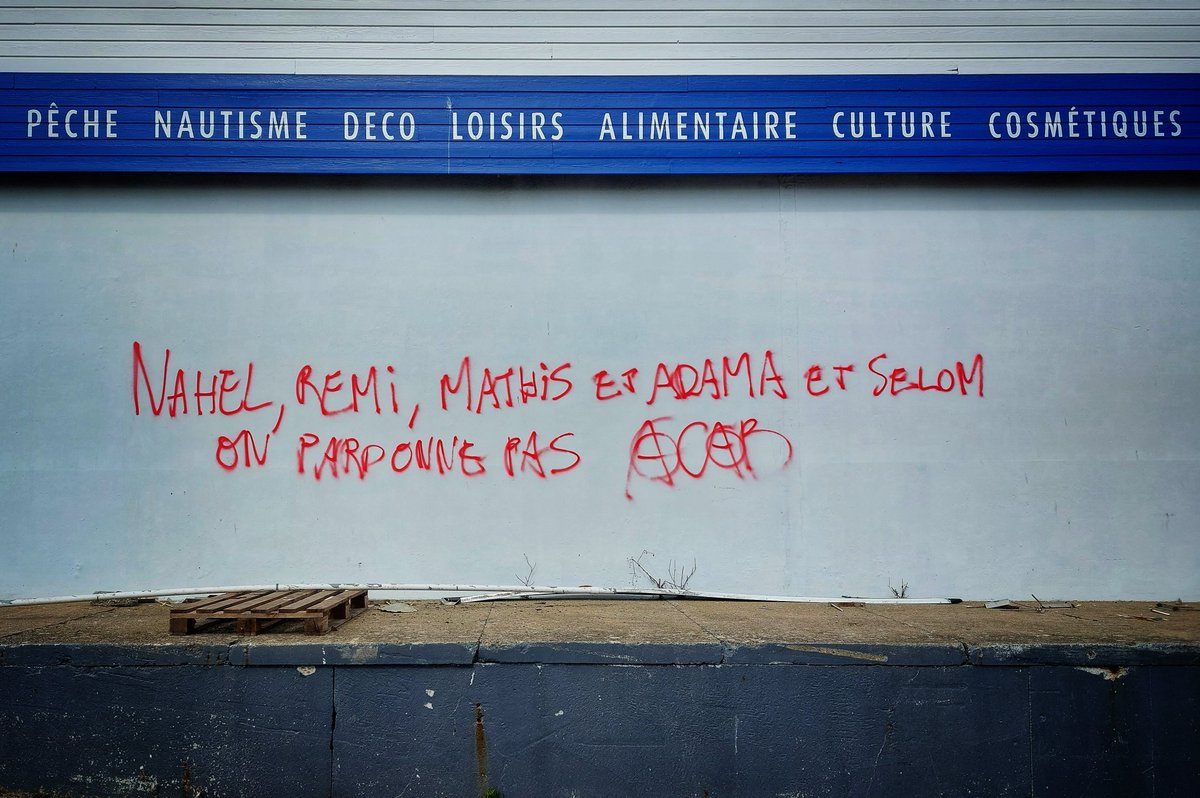 PÊCHE NAUTISME DECO LOISIRS ALIMENTAIRE CULTURE COSMÉTIQUES
NAHEL, REMi, MATHiS ET ADAMA ET SELOM
ON PARDONNE PAS ACAB